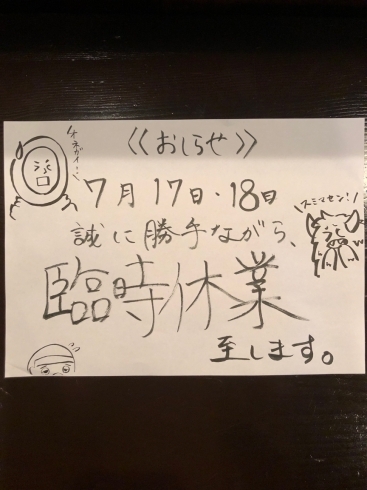 《おしらせ》
オネガイ…
7月17日・18日
スミマセン!
誠に勝手ながら、
臨時休業
至します。